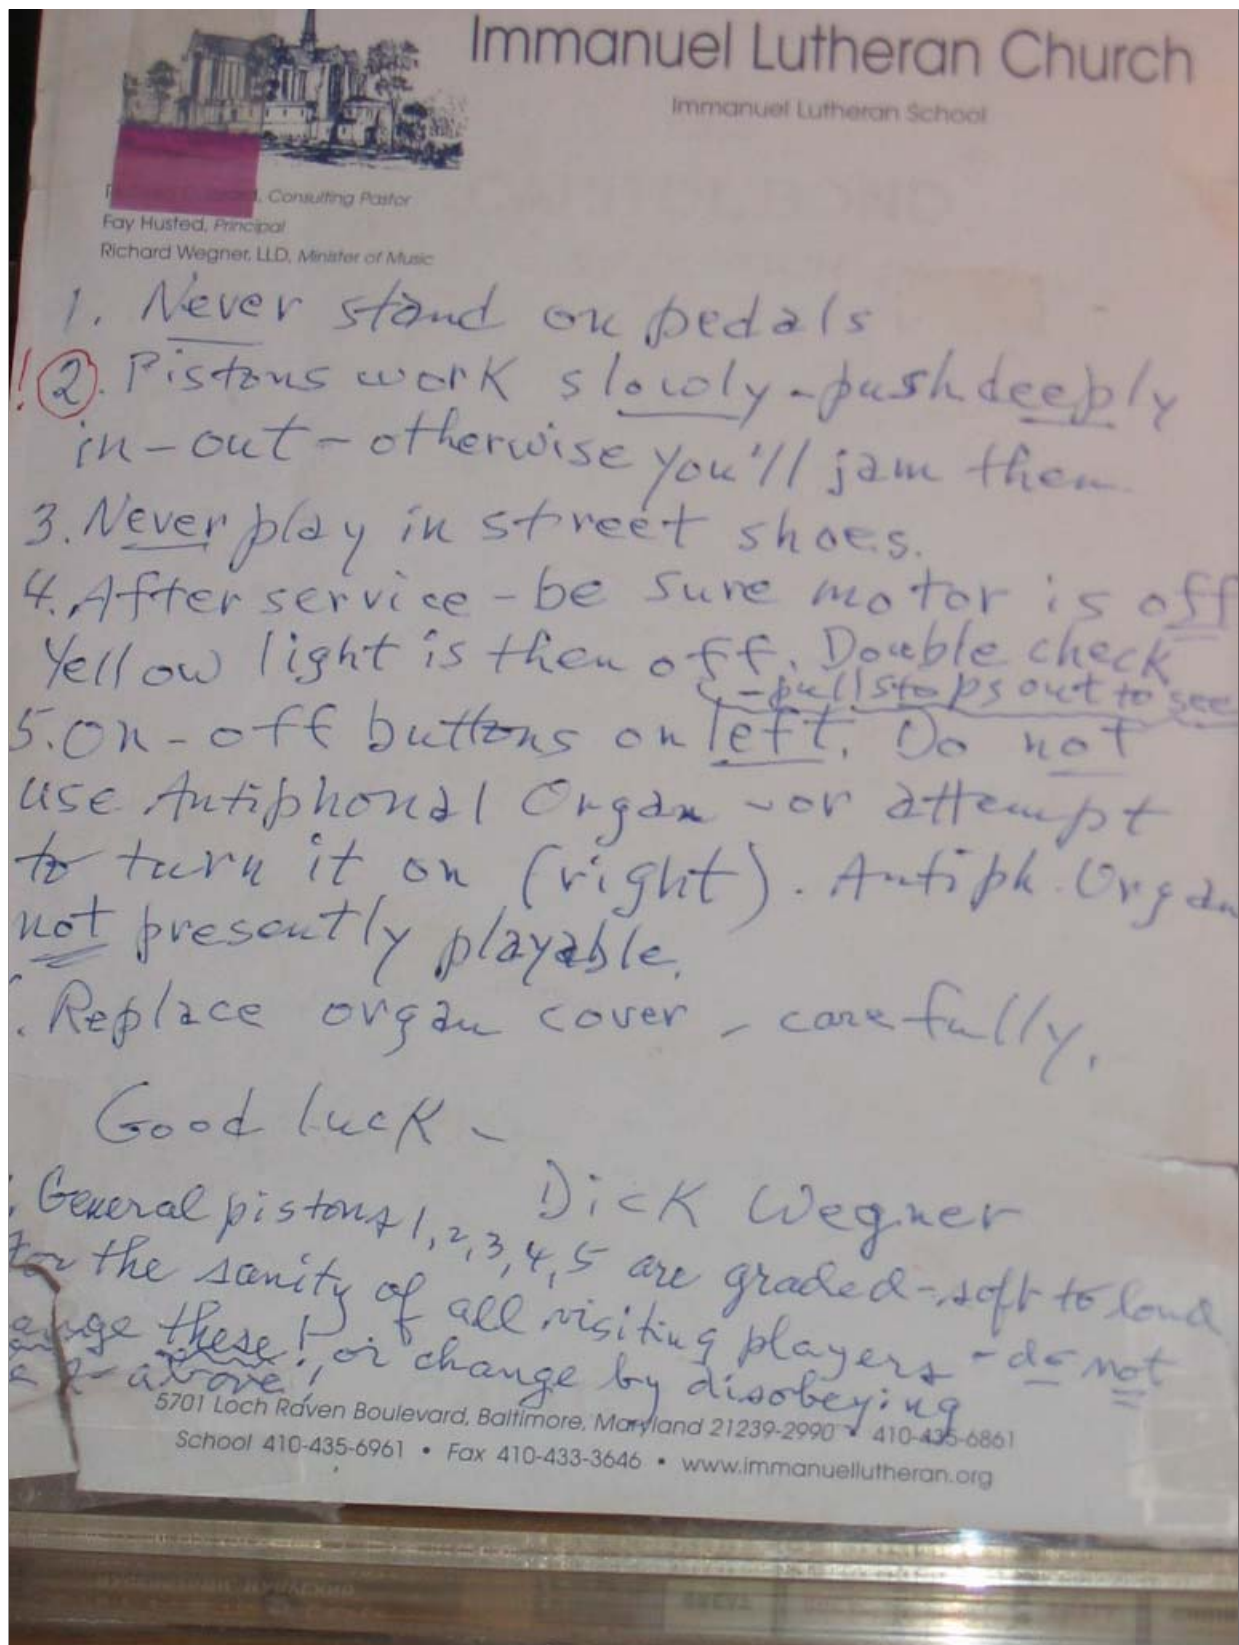 Immanuel Lutheran Church
Immanuel Lutheran School
Consulting Pastor
Fay Husted, Principal
Richard Wegner, LLD, Minister of Music
1. Never stand on pedals
! 2. Pistons work slowly - push deeply
in-out - otherwise you'll jam them
3. Never play in street shoes.
4. After service - be sure motor is off
Yellow light is then off. Double check
- pull stops out to see
5. On-off buttons on left. Do not
use Antiphonal Organ - or attempt
to turn it on (right). Antiph. Organ
not presently playable.
. Replace organ cover - carefully.
Good luck -
Dick Wegner
. General pistons 1, 2, 3, 4, 5 are graded - soft to loud
For the sanity of all visiting players - do not
ange these! or change by disobeying
2 - above!
5701 Loch Raven Boulevard, Baltimore, Maryland 21239-2990 • 410-435-6861
School 410-435-6961 • Fax 410-433-3646 • www.immanuellutheran.org